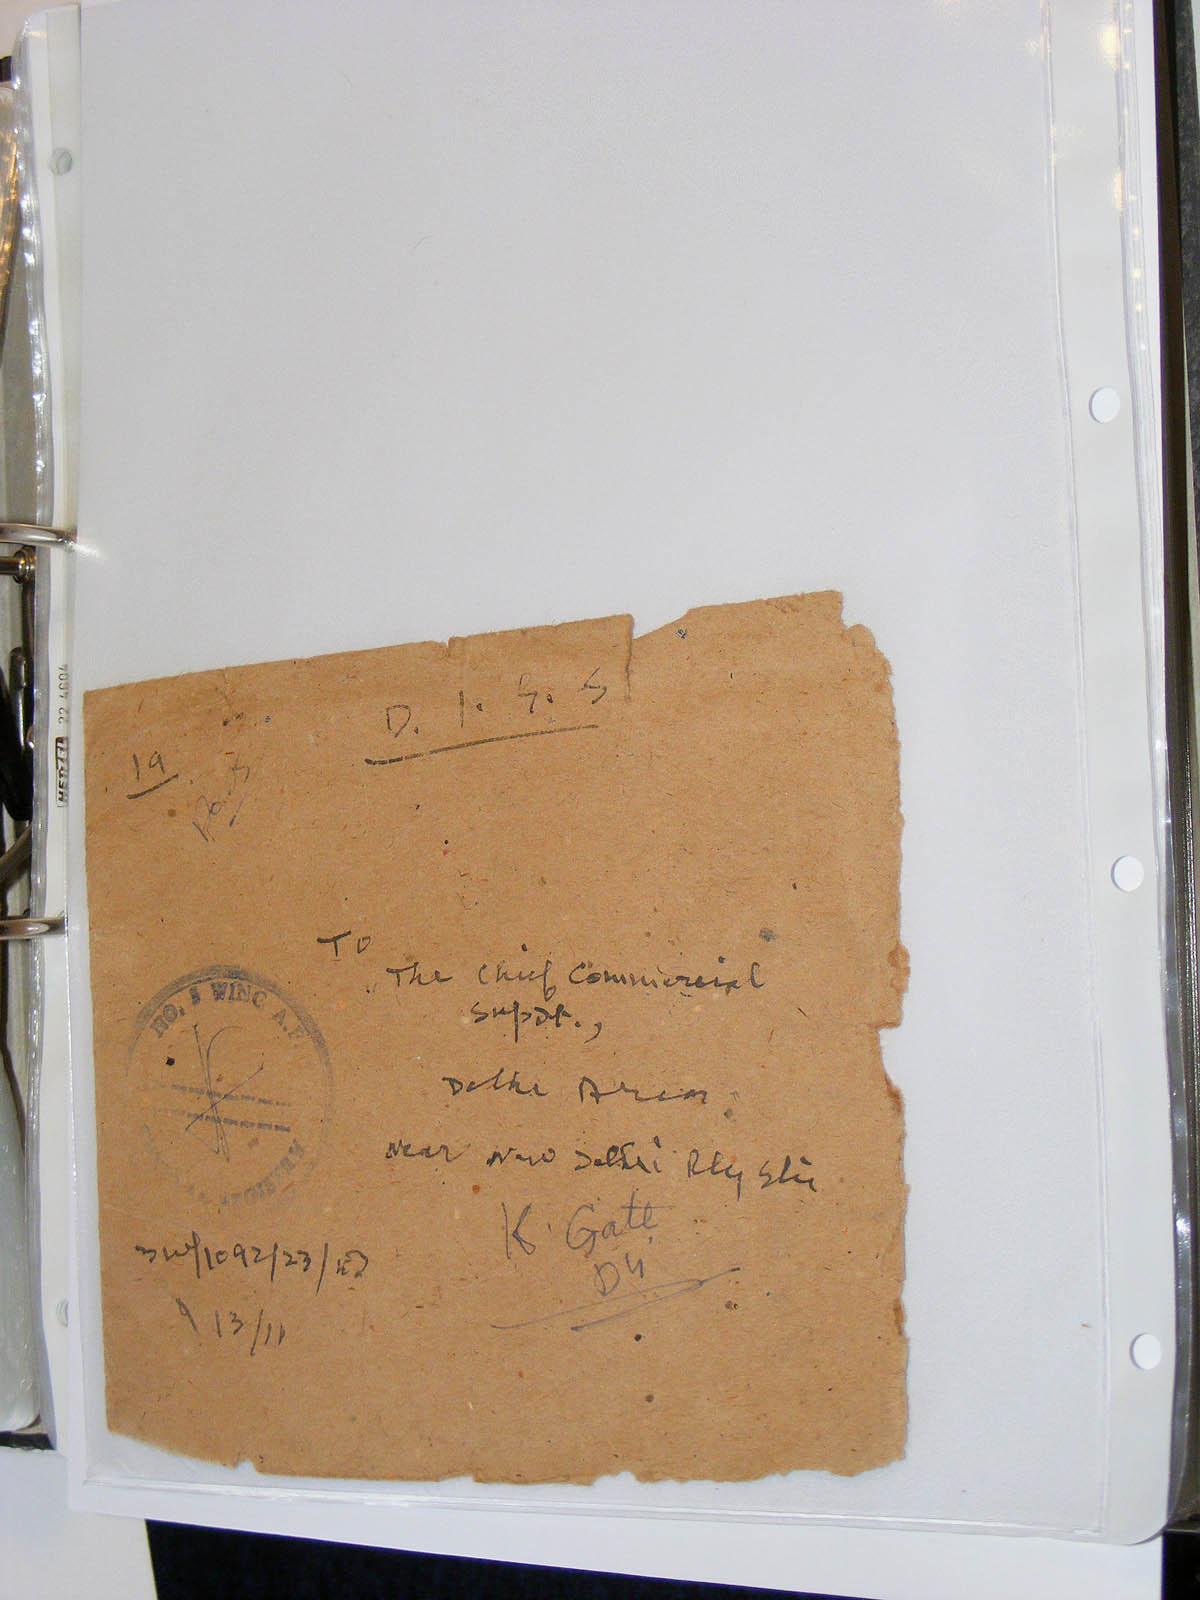 D. I. G. S
19
To
The Chief Commercial
Supdt.,
Delhi Area
Near New Delhi Rly Stn
K. Gate
NO. 3 WING A.F.
3W/1092/23/
13/11
HERZZ 22 4604